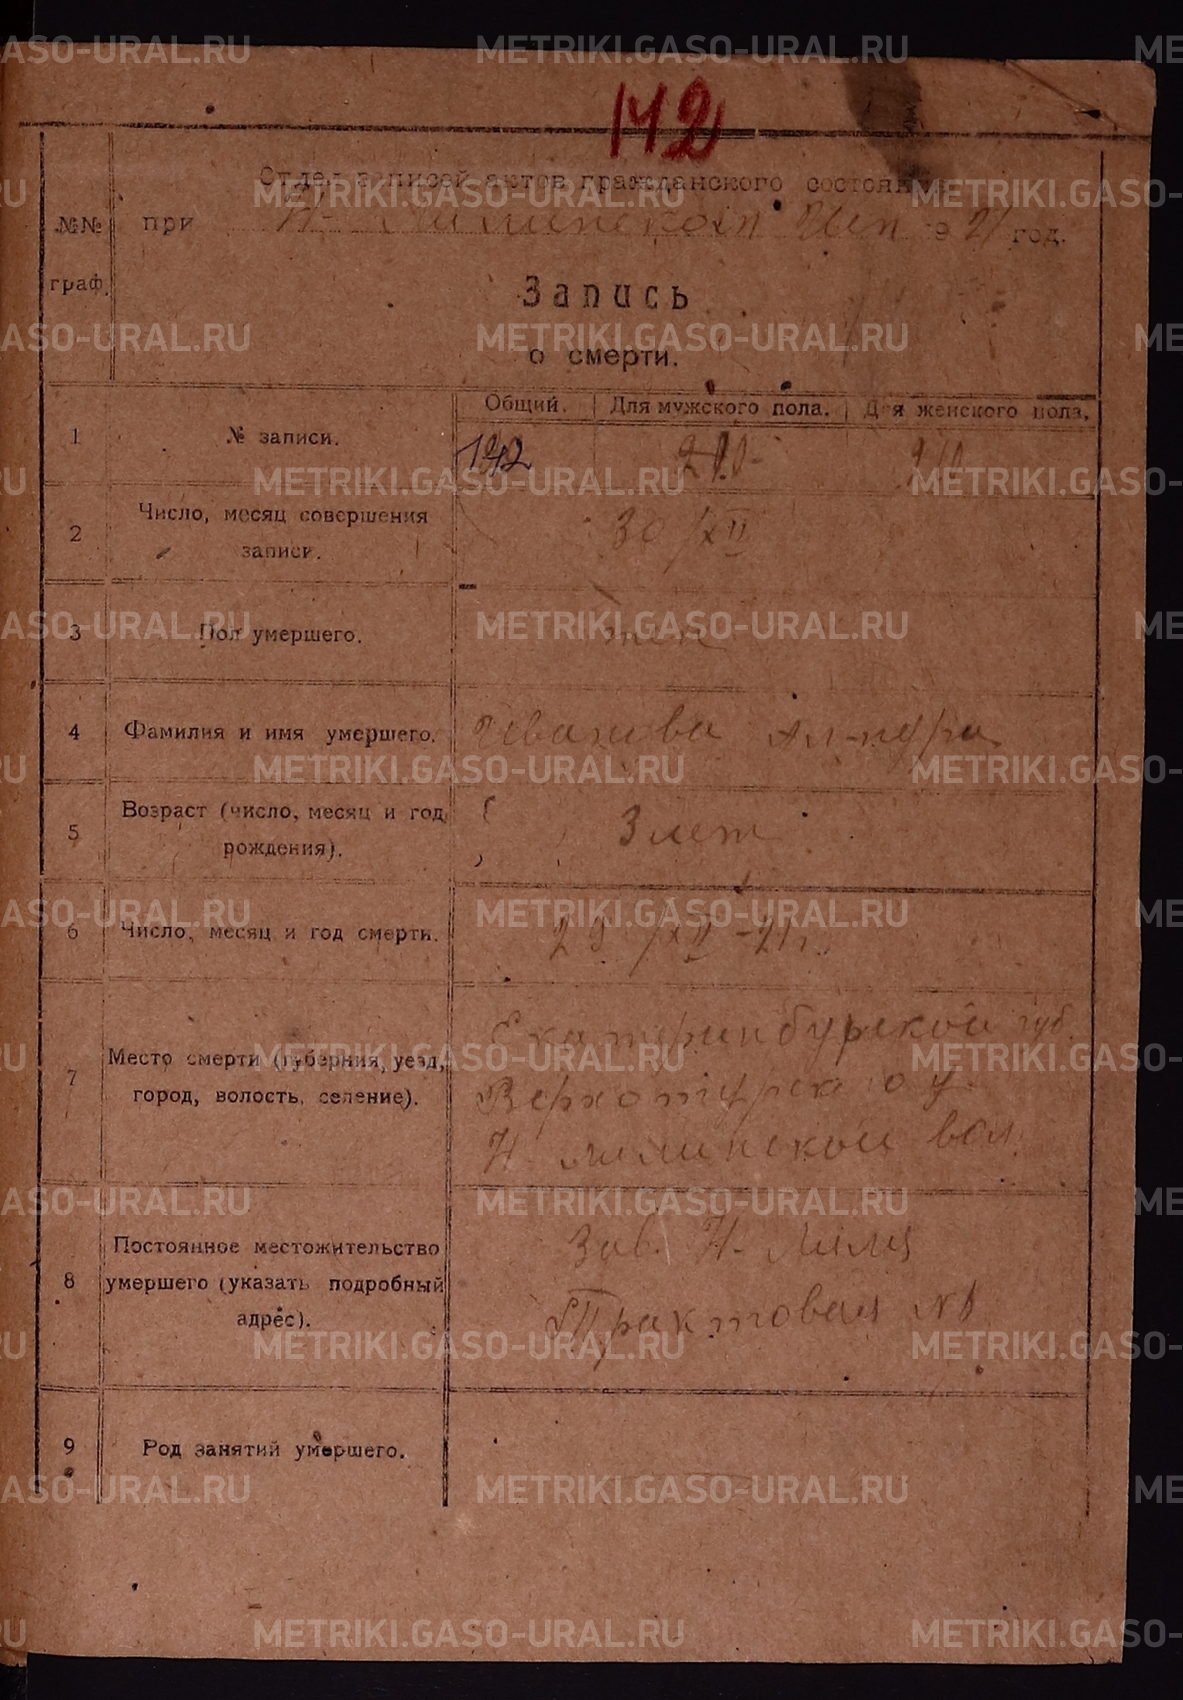 142
Отдел записей актов гражданского состояния
№№ граф.
при Н- Лялинской 1921 год.
Запись
о смерти.
Общий. Для мужского пола. Для женского пола.
1 № записи. 142
2 Число, месяц совершения записи. 30/XII
3 Пол умершего. жен
4 Фамилия и имя умершего. Иванова
5 Возраст (число, месяц и год рождения). 3 лет
6 Число, месяц и год смерти. 29/XII-21 г.
7 Место смерти (губерния, уезд, город, волость, селение). Екатеринбургской губ.
Верхотурск о у
Н лялинской вол.
8 Постоянное местожительство умершего (указать подробный адрес). Зав. Н- Ляля
Трактовая №
9 Род занятий умершего.
METRIKI.GASO-URAL.RU